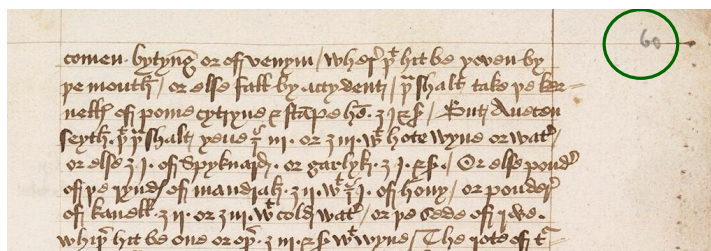 60
comen bytyng or of venym / wheþ þt hit be yoven by
þe mouth / or else fall by accydent / þu shalt take þe ker-
nell of pome cytryne & stāpe hē. ʒ j & ſ / But Avicen
seyth. þt þu shalt yeue ʒ iii. or ʒ iiii. wt hote wyne or watr /
or else ʒ j. of Spyknard. or garlyk. ʒ j. & ſ. / Or else poudr
of þe rynd of mandrak. ʒ ii. wt ʒ j. of hony / or pouder
of kanell. ʒ ii. or ʒ iii. wt cold watr / or þe sede of
wheþ hit be one or oþ. ʒ iii. & ſ wt wyne / The rote of